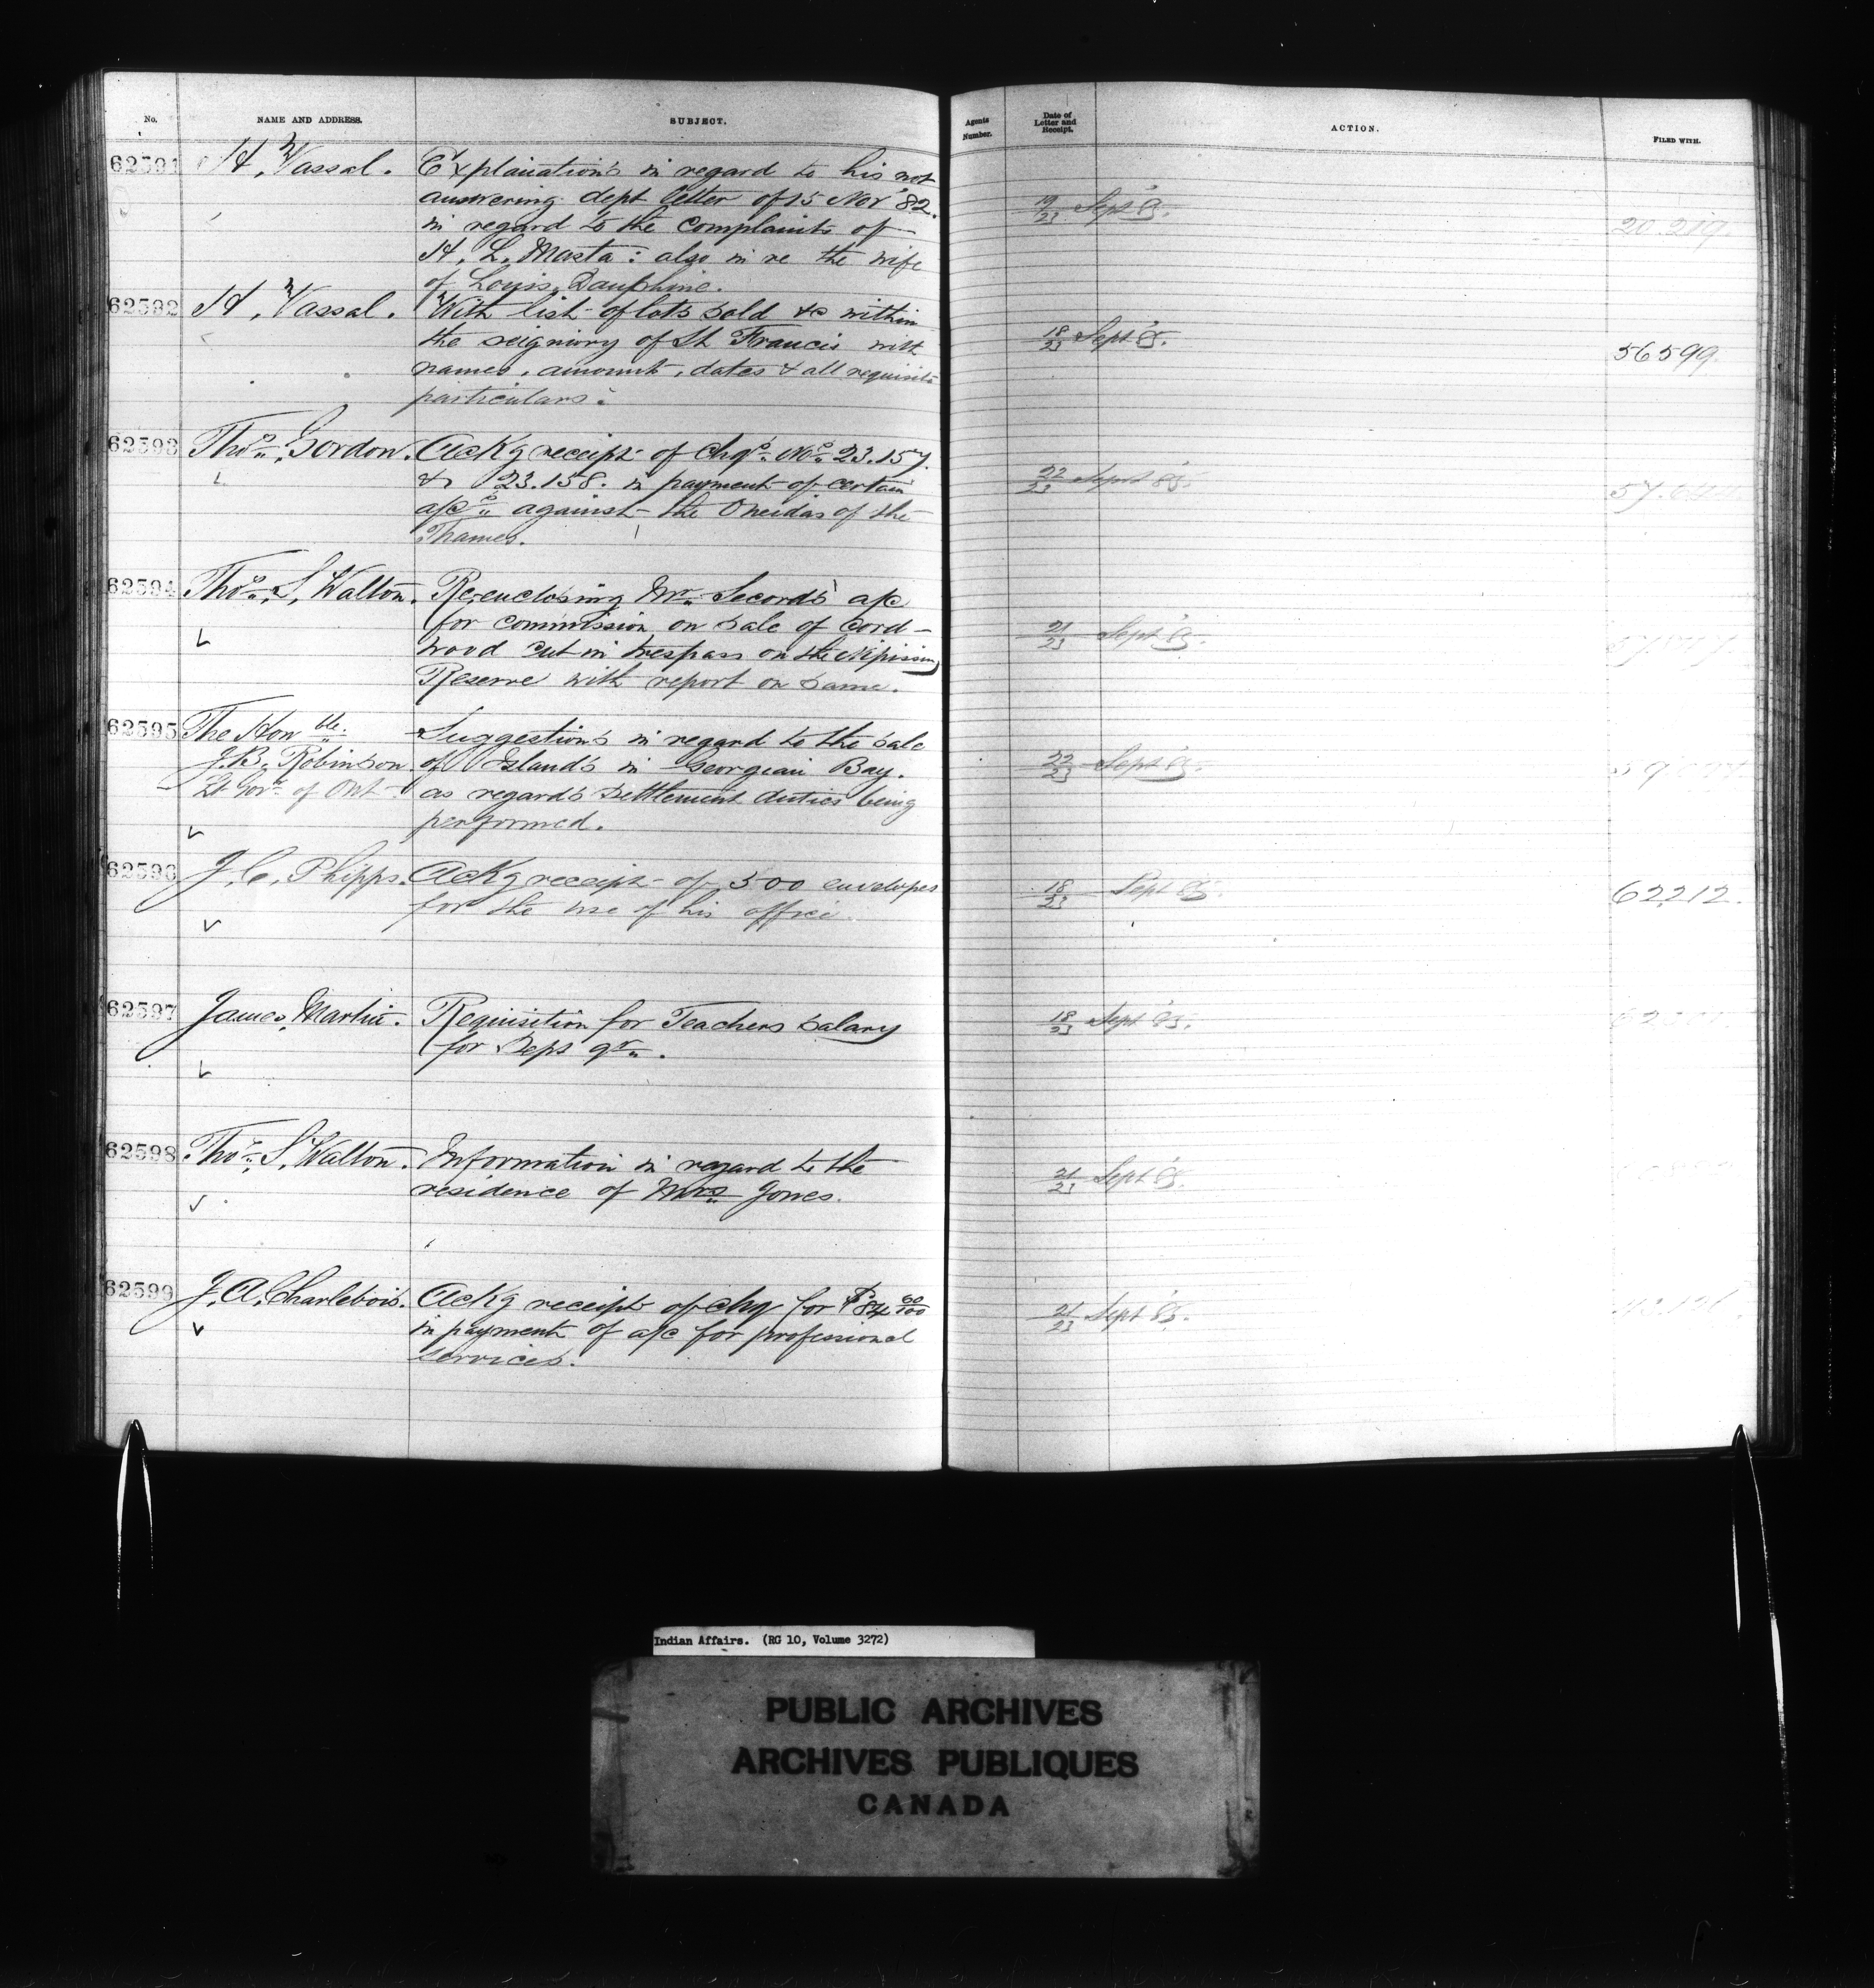 No. NAME AND ADDRESS. SUBJECT. Agents Number. Date of Letter and Receipt. ACTION. FILED WITH.
62591 H. Vassal. Explanations in regard to his not
answering dept letter of 15 Nov '82.
in regard to the complaints of
H. L. Masta: also in re the wife
of Louis Dauphine.
19/23 Sept 85. 20.219.
62592 H. Vassal. With list of lots sold &c within
the seigniory of St Francis with
names, amount, dates & all requisite
particulars.
18/23 Sept 85. 56599.
62593 Thos. Gordon. Ackg receipt of chqs. Nos. 23.157.
& 23.158. in payment of certain
a/cs against the Oneidas of the
Thames.
22/23 Sept 85.
62594 Thos. S. Walton. Re-enclosing Mr. Secord's a/c
for commission on sale of Cord-
wood cut in trespass on the Nipissing
Reserve with report on same.
21/23 Sept 85.
62595 The Honble. Suggestions in regard to the sale
J.B. Robinson of Islands in Georgian Bay.
Lt Govr. of Ont. as regards settlement duties being
performed.
22/23 Sept 85.
62596 J. C. Phipps. Ackg receipt of 500 envelopes
for the use of his office.
18/23 Sept 85. 62212.
62597 James Martin. Requisition for Teachers salary
for Sept qr.
18/23 Sept 85.
62598 Thos. S. Walton. Information in regard to the
residence of Mrs Jones.
21/23 Sept 85.
62599 J. A. Charlebois. Ackg receipt of chq for $84 60/100
in payment of a/c for professional
services.
21/23 Sept 85.
Indian Affairs. (RG 10, Volume 3272)
PUBLIC ARCHIVES
ARCHIVES PUBLIQUES
CANADA